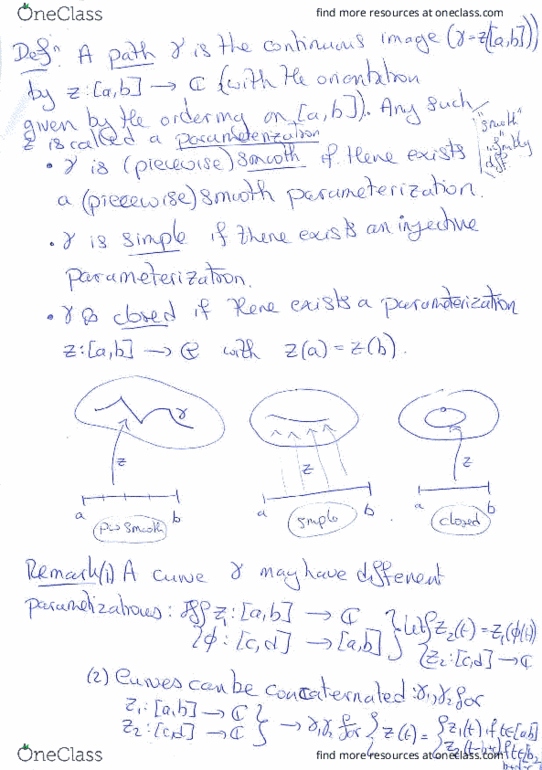 OneClass
find more resources at oneclass.com
Defⁿ: A path γ is the continuous image (γ=z([a,b]))
by z:[a,b] → ℂ (with the orientation
given by the ordering on [a,b]). Any such
z is called a parameterization
"smooth"
diff.
• γ is (piecewise) smooth if there exists
a (piecewise) smooth parameterization.
• γ is simple if there exists an injective
parameterization.
• γ is closed if there exists a parameterization
z:[a,b] → ℂ with z(a) = z(b).
γ
z
z
z
a b
a b
a b
pw smooth
simple
closed
Remark (1) A curve γ may have different
parametizations: If z₁:[a,b] → ℂ
φ:[c,d] → [a,b]
let z₂(t) = z₁(φ(t))
z₂:[c,d] → ℂ
(2) Curves can be concaternated: γ₁,γ₂ for
z₁:[a,b] → ℂ
z₂:[c,d] → ℂ
→ γ₁γ₂ for z(t) = z₁(t) if t∈[a,b]
OneClass
find more resources at oneclass.com